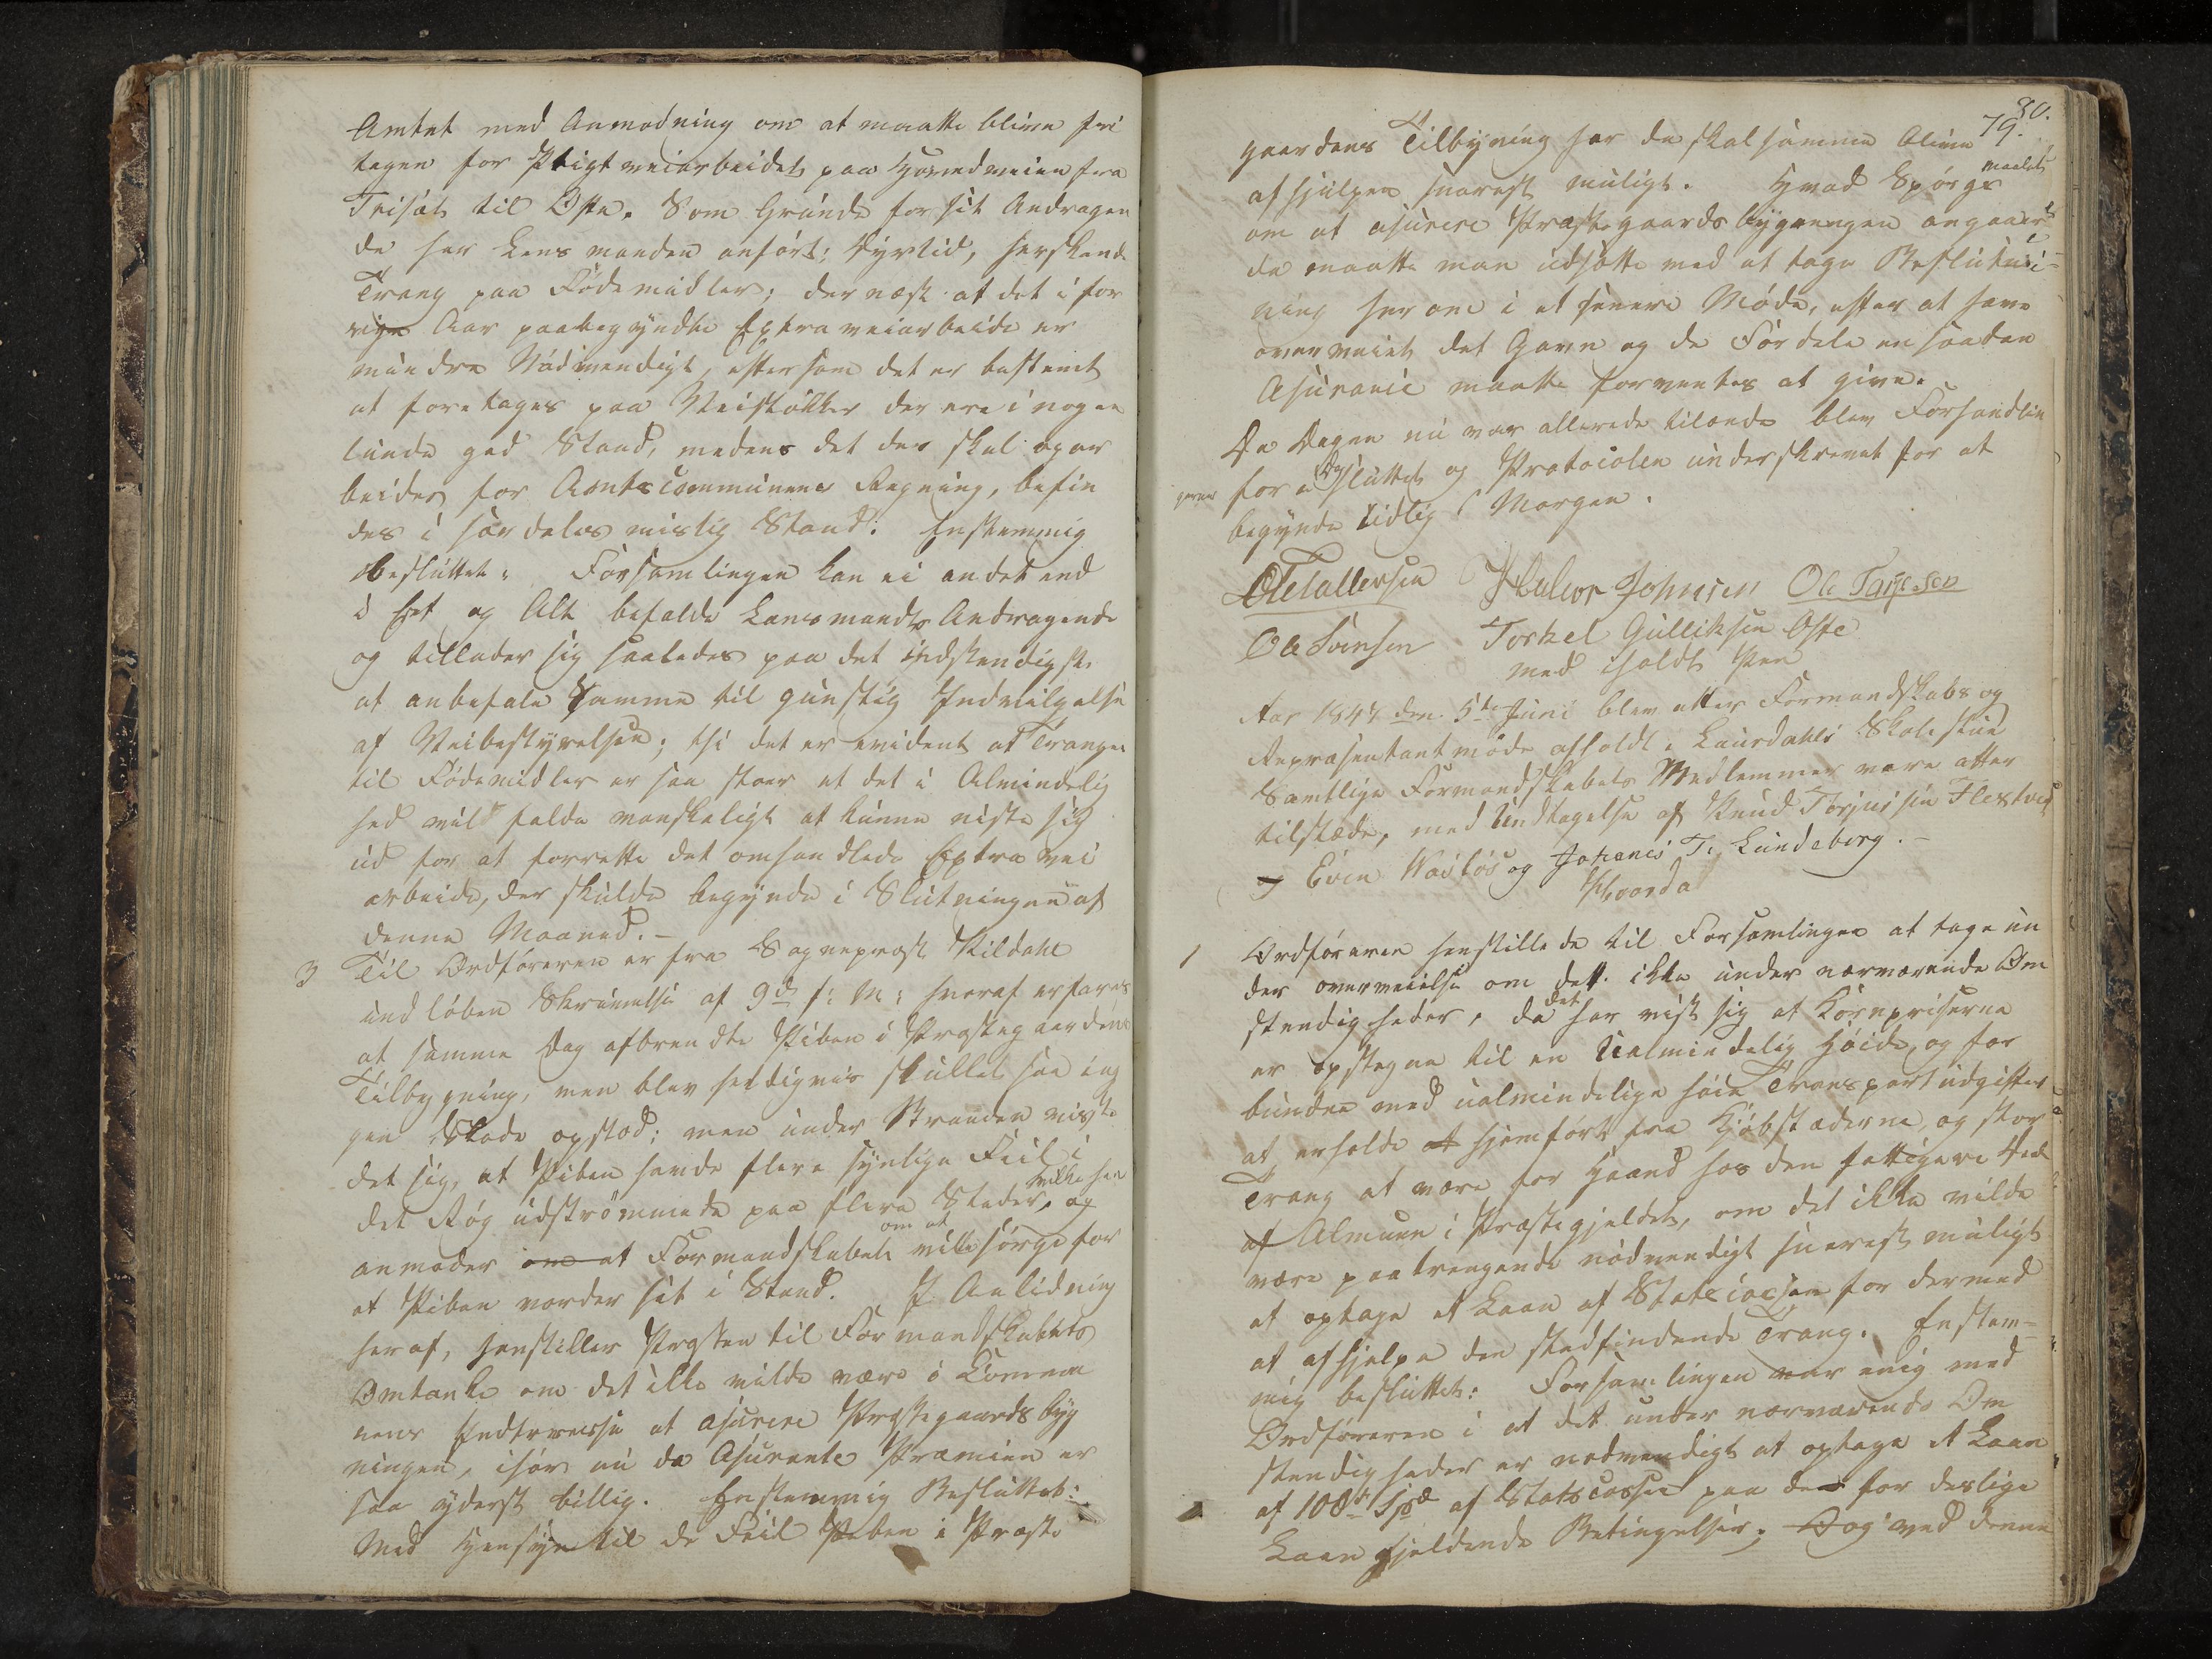 Amtet med Anmodning om at maatte blive fri
tagen for Pligtveiarbeidet paa Hovedveien fra
Triset til Ofte. Som Grunde for sit Andragen
de har Lensmanden anført; Dyrtid, herskende
Trang paa Fødemidler; dernæst at det i for
rige Aar paabegyndte Extraveiarbeide er
mindre Nødvendigt, eftersom det er bestemt
at foretages paa Veistøkker der ere i nogen
lunde god Stand, medens det der skal opar
beides for Amtscommunens Regning, befin
des i særdeles mislig Stand. Enstemmig
besluttet: Forsamlingen kan ei andet end
i Et og Alt befalde Lensmandts Andragende
og tillader sig saaledes paa det indstendigste
at anbefale samme til gunstig Indvilgelse
af Veibestyrelsen; thi det er evident at Trangen
til Fødemidler er saa stoer at det i Almindelig
hed vil falde vanskeligt at kunne riste sig
ud for at forrette det omhandlede Extra vei
arbeide, der skulde begynde i Slutningen af
denne Maaned. -
3 Til Ordføreren er fra Sognepræst Kildahl
indløben Skrivelse af 9d f: M: hvoraf erfares
at samme Dag afbrendte Piben i Præstegaardens
Tilbygning, men blev heldigvis slukket saa in
gen Skade opstod; men under Branden viste
det sig, at Piben havde flere synlige Feil i
det Røg udstrømmede paa flere Steder, og
anmoder om at Formandskabet om at ville sørge for
at Piben vorder sat i Stand. I Anlidning
heraf, henstiller Præsten til Formandskabets
Omtanke om det ikke vilde være i Commu
nens Inderresse at asurere Præstegaardsbyg
ningen, især nu da Asurante Præmien er
saa yderst billig. Enstemmig Besluttet:
Med Hensyn til de Feil Piben i Præste
80.
79.
gaardens Tilbygning har da skal samme blive
afhjulpen snarest muligt. Hvad Spørgs maalet
om at asurere Præstegaardsbygningen angaaer
da maatte man udsætte med at tage Beslutni-
ning herom i et senere Møde, efter at have
overveiet det Gavn og de Fordele en saadan
Asurance maatte forventes at give.
Da Dagen nu var allerede tilende blev Forhandlin
gerne for i Dag sluttet og Protocolen underskrevet for at
begynde tidlig i Morgen.
OTellefsen Halvor Johnsen Ole Tarjesen
Ole Svensen Torkel Gulliksen Ofte
med iholdt Pen
Aar 1847 den 5te Juni blev atter Formandskabs og
Repræsentantmøde afholdt i Laurdahls Skolestue
Samtlige Formandskabets Medlemmer vare atter
tilstæde, med Undtagelse af Knud Torjussen Flestveit
Even Vasløs og Johanes T. Lundeborg. -
1 Ordføreren henstillede til Forsamlingen at tage un
der overveielse om det ikke under nærværende Om
stendigheder, da det har vist sig at Kornpriserne
er opstegne til en Ualmindelig Høide, og for
bunden med ualmindelige høie Transportudgifter
at erholde hjemført fra Kjøbstæderne, og stor
Trang at være for Haand hos den fattigere Deel
af Almuen i Præstegjeldet, om det ikke vilde
være paatrængende nødvendigt snarest muligt
at optage et Laan af Statscassen for dermed
at afhjelpe den stedfindende Trang. Enstem-
mig besluttet: Forsamlingen var enig med
Ordføreren i at det under nærværende Om
stendigheder er nødvendigt at optage et Laan
af 108 Spd af Statscassen paa de for deslige
Laan gjeldende Betingelser; Dog ved denne